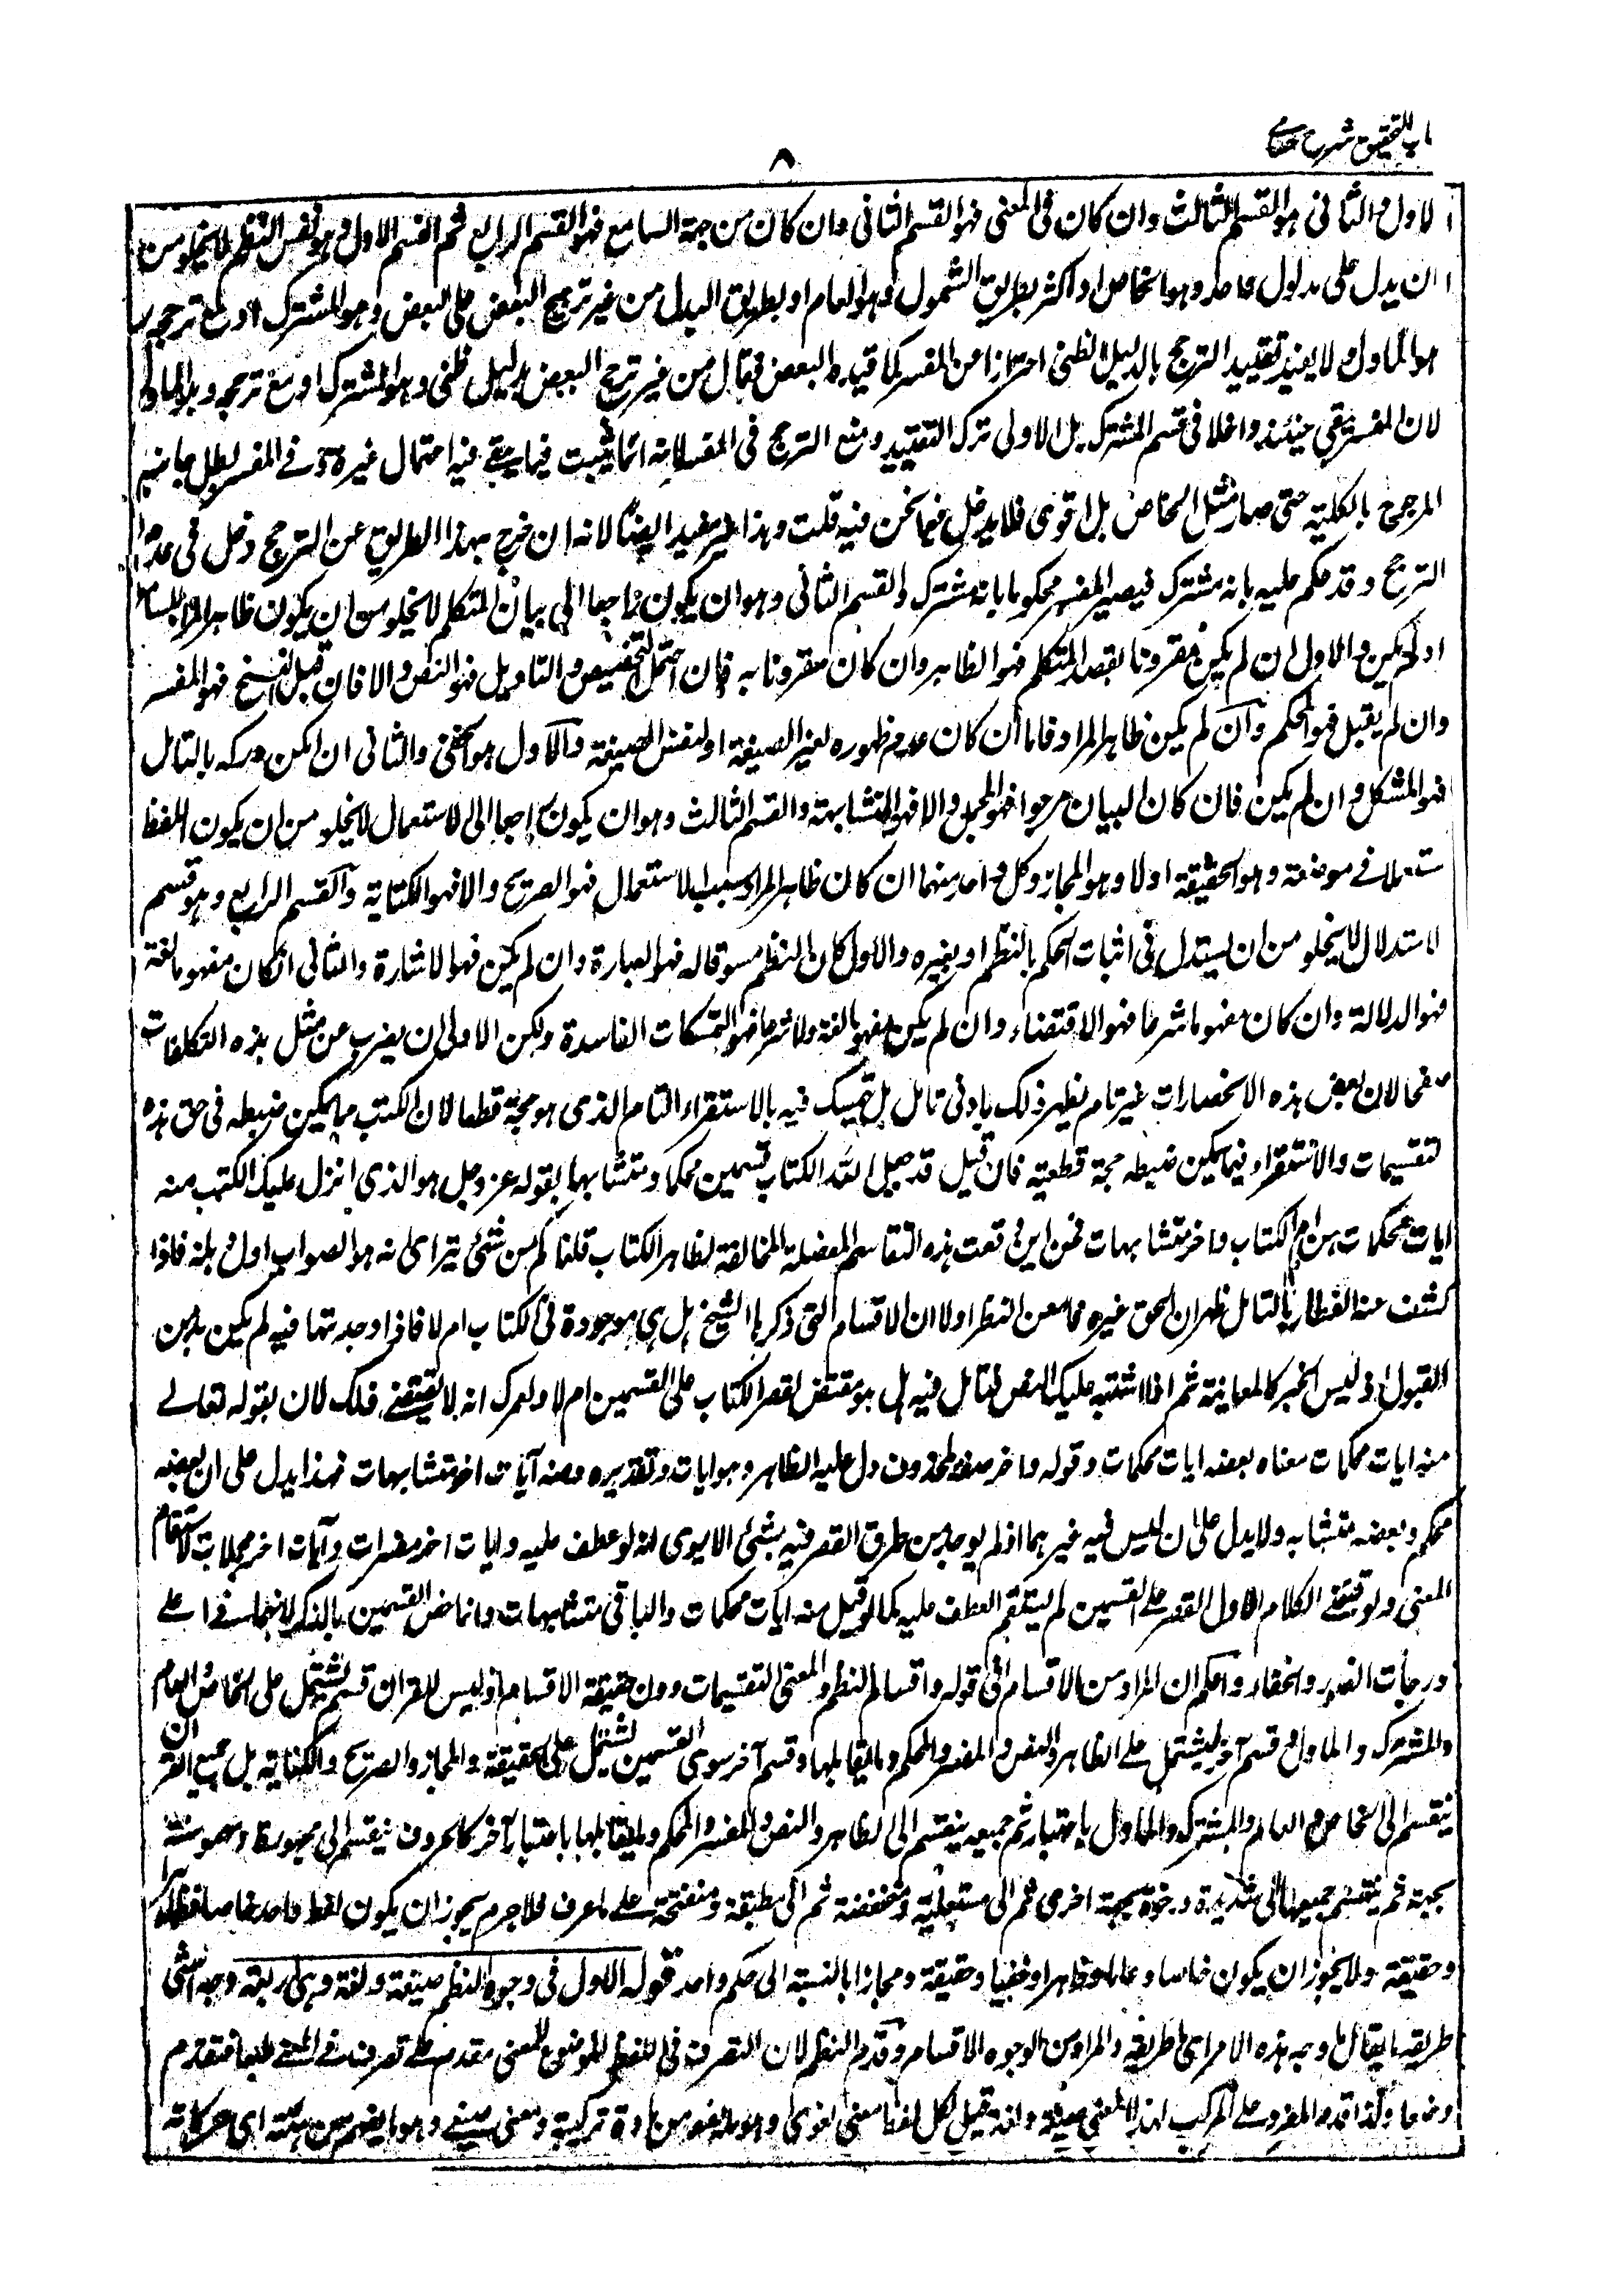 التحقيق شرح حسامي
٨
الاول والثاني هو القسم الثالث وان كان في المعنى فهو القسم الثاني وان كان من جهة السامع فهو القسم الرابع ثم القسم الاول وهو نفس النظم لا يخلو من
ان يدل على مدلول واحد وهو الخاص او اكثر بطريق الشمول وهو العام او بطريق البدل من غير ترجيح البعض على البعض وهو المشترك او مع ترجيحه
هو الماول ولا يفيد تقييد الترجيح بالدليل الظني احترازا من المفسر كما قيده البعض فقال من غير ترجح البعض بدليل ظني وهو المشترك او مع ترجحه وهو الماول
لان المفسر بقي حينئذ داخلا في قسم المشترك بل الاولى ترك التقييد ومنع الترجح في المفسر لانه انما يثبت فيما يبقى فيه احتمال غيره وفي المفسر بطل جانب
المرجوح بالكلية حتى صار مثل الخاص بل اقوى فلا يدخل فيما نحن فيه قلت وهذا غير مفيد ايضا لانه ان خرج بهذا الطريق عن الترجح دخل في عدم
الترجح وقد حكم عليه بانه مشترك فيصير المفسر محكوما بانه مشترك والقسم الثاني وهو ان يكون راجعا الى بيان المتكلم لا يخلو من ان يكون ظاهر المراد للسامع
او لم يكن والاول ان لم يكن مقرونا بقصد المتكلم فهو الظاهر وان كان مقرونا به فان احتمل التخصيص والتاويل فهو النص والا فان قبل النسخ فهو المفسر
وان لم يقبل فهو المحكم وان لم يكن ظاهر المراد فاما ان كان عدم ظهوره لغير الصيغة او لنفس الصيغة والاول هو الخفي والثاني ان امكن دركه بالتامل
فهو المشكل وان لم يكن فان كان البيان مرجوا فهو المجمل والا فهو المتشابه والقسم الثالث وهو ان يكون راجعا الى الاستعمال لا يخلو من ان يكون اللفظ
مستعملا في موضعه وهو الحقيقة او لا وهو المجاز وكل واحد منهما ان كان ظاهر المراد بسبب الاستعمال فهو الصريح والا فهو الكناية والقسم الرابع وهو قسم
الاستدلال لا يخلو من ان يستدل في اثبات الحكم بالنظم او بغيره والاول ان كان النظم مسوقا له فهو العبارة وان لم يكن فهو الاشارة والثاني ان كان مفهوما لغة
فهو الدلالة وان كان مفهوما شرعا فهو الاقتضاء وان لم يكن مفهوما لغة ولا شرعا فهو التمسكات الفاسدة ولكن الاولى ان يضرب عن مثل هذه التكلفات
صفحا لان بعض هذه الانحصارات غير تام يظهر ذلك بادنى تامل بل يتمسك فيه بالاستقراء التام الذي هو حجة قطعا لان الكتب مما يمكن ضبطه في حق هذه
التقسيمات والاستقراء فيما يمكن ضبطه حجة قطعية فان قيل قد جعل الله الكتاب قسمين محكما ومتشابها بقوله عز وجل هو الذي انزل عليك الكتب منه
ايات محكمات هن ام الكتاب واخر متشابهات فمن اين وقعت هذه التقاسيم المعضلة المخالفة لظاهر الكتاب قلنا كم من شئ يتراى انه هو الصواب اول وهلة فاذا
كشف عنه الغطاء بالتامل ظهر ان الحق غيره فامعن النظر اولا ان الاقسام التي ذكرها الشيخ هل هي موجودة في الكتاب ام لا فاذا وجدتها فيه لم يكن بد من
القبول اذ ليس الخبر كالمعاينة ثم اذا اشتبه عليك النص فتامل فيه هل هو مقتض لقصر الكتاب على القسمين ام لا ولعمرك انه لا يقتضي ذلك لان بقوله تعالى
منه ايات محكمات معناه بعضه ايات محكمات وقوله واخر صفة لمحذوف دل عليه الظاهر وهو ايات وتقديره ومنه آيات اخر متشابهات فهذا يدل على ان بعضه
محكم وبعضه متشابه ولا يدل على ان ليس فيه غيرهما اذ لم يوجد من طرق القصر فيه بشئ الا يرى انه لو عطف عليه وايات اخر مفسرات وآيات اخر مجملات لاستقام
المعنى ولو اقتضى الكلام الاول القصر على القسمين لم يستقم العطف عليه كما لو قيل منه ايات محكمات والباقي متشابهات وانما خص القسمين بالذكر لانهما في اعلى
درجات الظهور والخفاء واعلم ان المراد من الاقسام في قوله واقسام النظم والمعنى التقسيمات دون حقيقة الاقسام اذ ليس للقران قسم يشتمل على الخاص والعام
والمشترك والماول وقسم آخر يشتمل على الظاهر والنص والمفسر والمحكم وما يقابلها وقسم آخر سوى القسمين يشتمل على الحقيقة والمجاز والصريح والكناية بل جميع القران
ينقسم الى الخاص والعام والمشترك والماول باعتبار ثم جميعه ينقسم الى الظاهر والنص والمفسر والمحكم وما يقابلها باعتبار آخر كالحروف ينقسم الى مجهورة ومهموسة
بجهة ثم ينقسم جميعها الى شديدة ورخوة بجهة اخرى ثم الى مستعلية ومنخفضة ثم الى مطبقة ومنفتحة على ما عرف فلا جرم يجوز ان يكون لفظ واحد خاصا ظاهرا
وحقيقة ولا يجوز ان يكون خاصا وعاما وظاهرا وخفيا وحقيقة ومجازا بالنسبة الى حكم واحد قوله الاول في وجوه النظم صيغة ولغة وهي اربعة وجه الشئ
طريقه يقال ما وجه هذه الامر اى طريقه والمراد من الوجوه الاقسام وقدم النظم لان التصرف في اللفظ الموضوع للمعنى مقدم على تصرف في المعنى طبعا فقدم
وضعا ولذا قدم المفرد على المركب لهذا المعنى صيغة ولغة قيل لكل لفظ معنى لغوى وهو ما يفهم من مادة تركيبه ومعنى صيغى وهو ما يفهم من هيئته اى حركاته